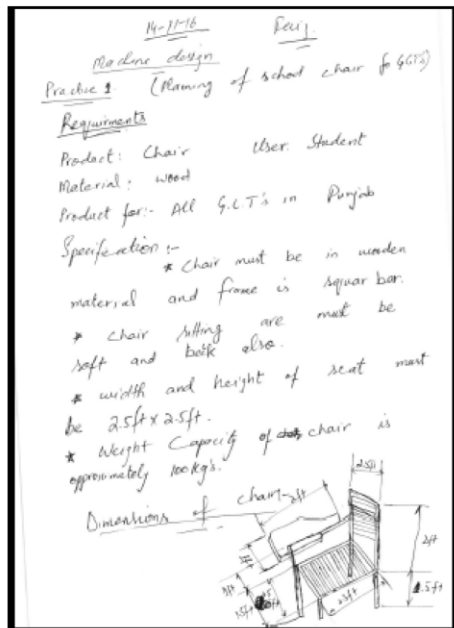 14-11-16
Machine design
Practice 1. (Planning of school chair for GCT's)
Requirments
Product: Chair User: Student
Material: wood
Product for:- All G.C.T's in Punjab
Specification:-
* Chair must be in wooden
material and frame is squar bar.
* chair sitting are must be
soft and back also.
* width and height of seat must
be 2.5ft x 2.5ft.
* Weight Capacity of chair is
approximately 100kg's.
Dimensions of chair:-
2ft
2.5ft
1ft
2ft
1.5ft
2.5ft
1.5ft